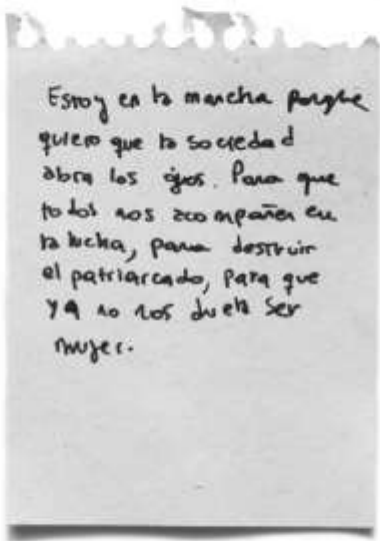 Estoy en la marcha porque
quiero que la sociedad
abra los ojos. Para que
todos nos acompañen en
la lucha, para destruir
el patriarcado, para que
ya no nos duela ser
mujer.